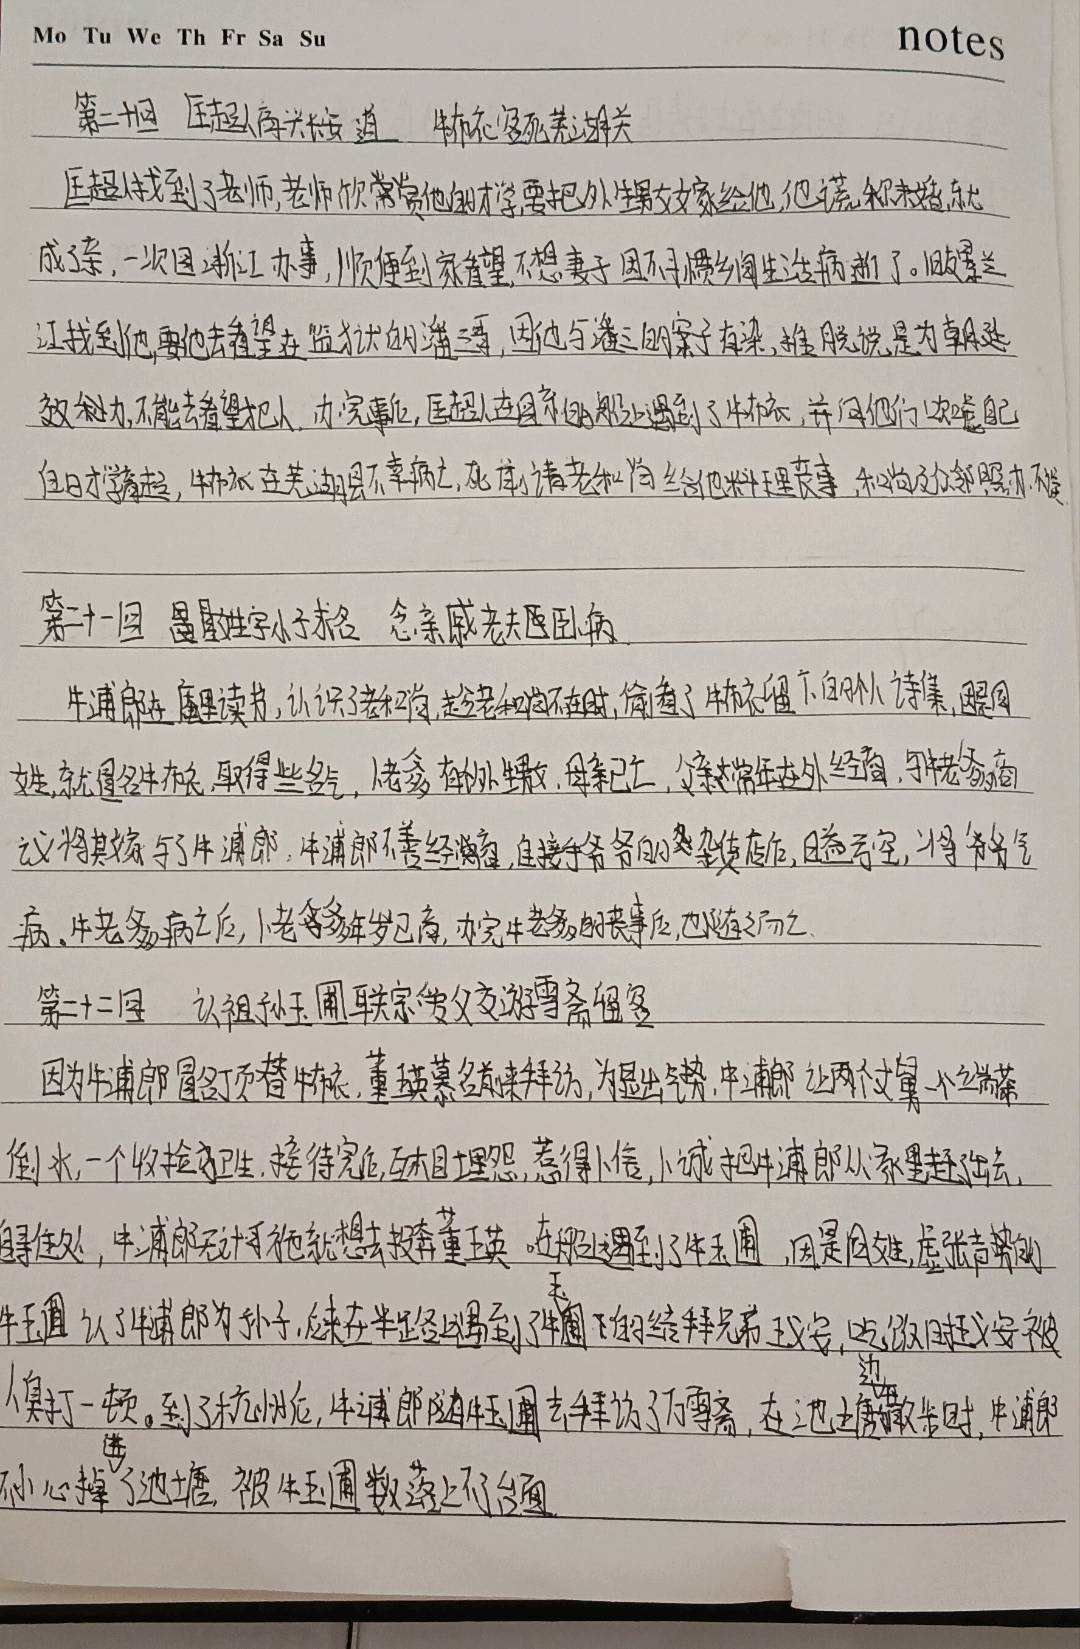 Mo Tu We Th Fr Sa Su
notes
第二十回 匡超人高兴长安道 牛布衣客死芜湖关
匡超人找到了老师,老师欣常赏他的才学,要把外甥女嫁给他,他谎称未婚,就
成了亲,一次因浙江办事,顺便到家看望,不想妻子因不习惯乡间生活病逝了。旧友景兰
江找到他,要他去看望在监狱的潘三哥,因他与潘三的案子有染,推脱说是为朝廷
效力,不能去看望犯人.办完事后,匡超人在回京的船上遇到了牛布衣,并向他们吹嘘自己
往日才学高超,牛布衣在芜湖县不幸病亡,死前请老和尚给他料理丧事,和尚及众邻照办不误
第二十一回 冒姓字小子求名 念亲戚老夫卧病
牛浦郎在庙里读书,认识了老和尚,趁老和尚不在时,偷看了牛布衣留下的个人诗集,因是同
姓,就冒名牛布衣,取得些名气,卜老爹有个外甥女,母亲已亡,父亲常年在外经商,与牛老爹商
议将其嫁与了牛浦郎,牛浦郎不善经商,自接手爷爷的杂货店后,日益亏空,将爷爷气
病。牛老爹病亡后,卜老爹年岁已高,办完牛老爹的丧事后,也随之而亡.
第二十二回 认祖孙玉圃联宗 爱交游雪斋留客
因为牛浦郎冒名顶替牛布衣,董瑛慕名前来拜访,为显出气势,牛浦郎让两个丈舅一个端茶
倒水,一个收捡卫生,接待完后,互相埋怨,惹得卜信,卜诚把牛浦郎从家里赶出去,
得住处,牛浦郎无计可施就想去投奔董瑛,在船上遇到了牛玉圃,因是同姓,虚张声势的
牛玉圃认了牛浦郎为孙子,后来在半路上遇到了牛玉圃的结拜兄弟王义安,吃饭时王义安被
人臭打一顿。到了杭州后,牛浦郎随牛玉圃去拜访了万雪斋,在池塘边散步时,牛浦郎
不小心掉进了池塘,被牛玉圃数落上不了台面.